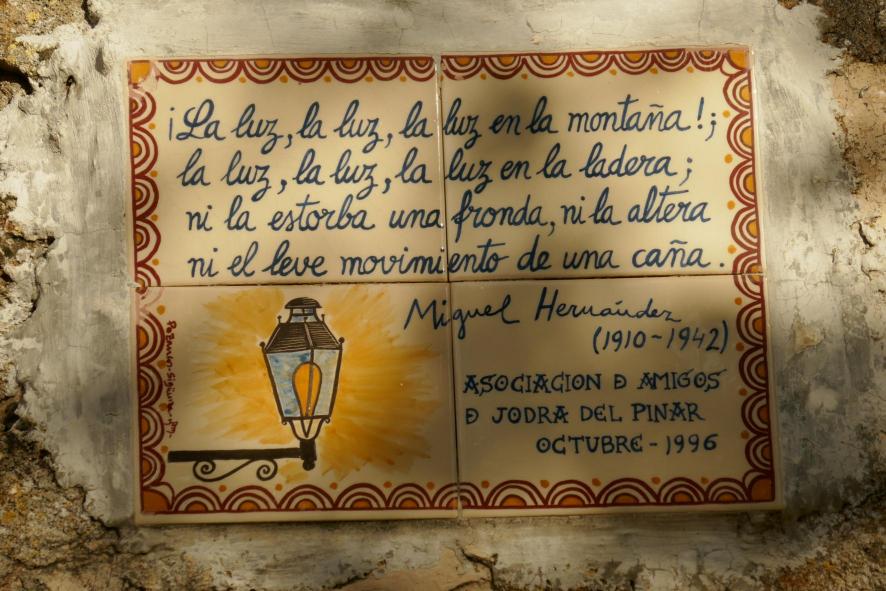 ¡La luz, la luz, la luz en la montaña!;
la luz, la luz, la luz en la ladera;
ni la estorba una fronda, ni la altera
ni el leve movimiento de una caña.
Miguel Hernández
(1910-1942)
ASOCIACION D AMIGOS
D JODRA DEL PINAR
OCTUBRE-1996